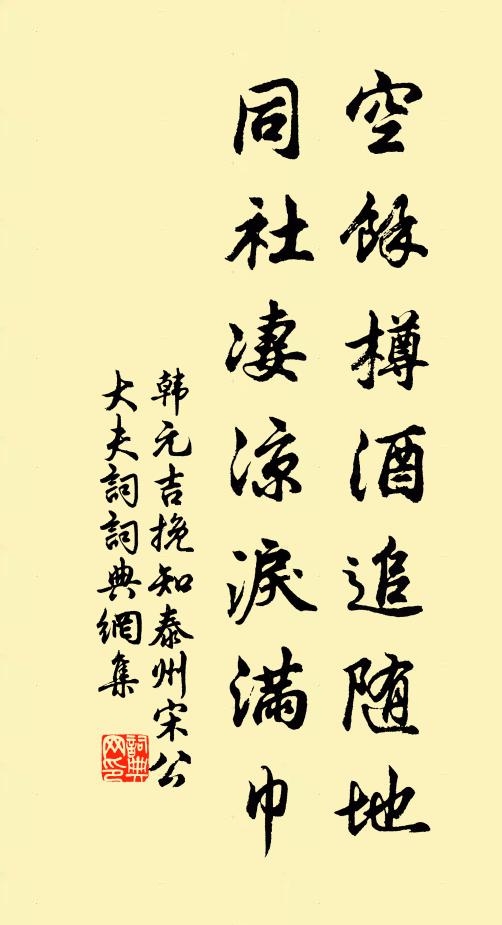 空餘樽酒追随地
同社凄凉淚滿巾
韩元吉挽知泰州宋公
大夫詞詞典網集
詞典
网印